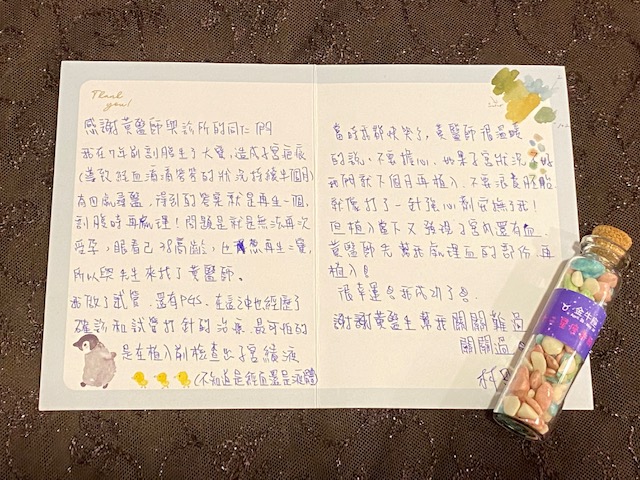 Thank you!
感謝黃醫師與診所的同仁們
我在7年前剖腹生了大寶,造成子宮疤痕
(導致經血滴滴答答的狀況持續半個月)
有四處尋醫,得到的答案就是再生一個,
剖腹時再處理!問題是就是無法再次
受孕,眼看已邁高齡,也想再生二寶,
所以與先生來找了黃醫師。
我做了試管,還有PGS,在這中也經歷了
確診和試管打針的治療,最可怕的
是在植入前檢查出子宮積液
(不知道是經血還是液體)
當時我都快哭了,黃醫師很溫暖
的說,不要擔心,如果子宮狀況不好
我們就下個月再植入,不要浪費胚胎
就像打了一針強心劑安撫了我!
但植入當下又發現子宮內還有血,
黃醫師先幫我處理血的部份,再
植入!
很幸運的我成功了!
謝謝黃醫生幫我關關難過
關關過。
金牛座